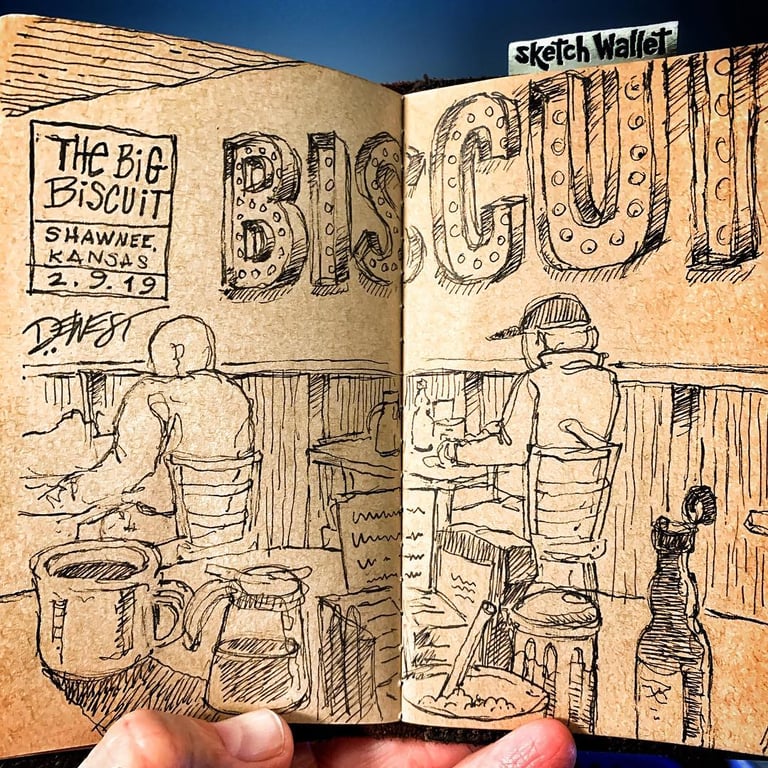 sketch Wallet
THE BiG
BiSCUiT
SHAWNEE,
KANSAS
2.9.19
BISCUI